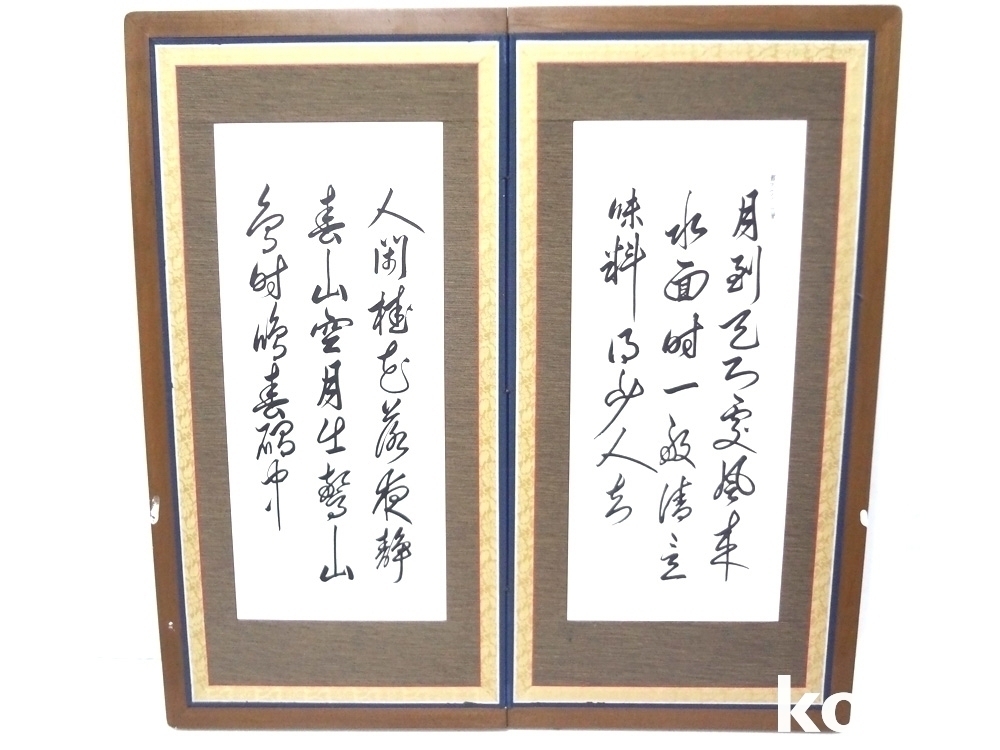 月到天心處風來
水面时一般清意
味料得少人知
人閑桂花落夜静
春山空月出驚山
鳥时鳴春磵中
ko